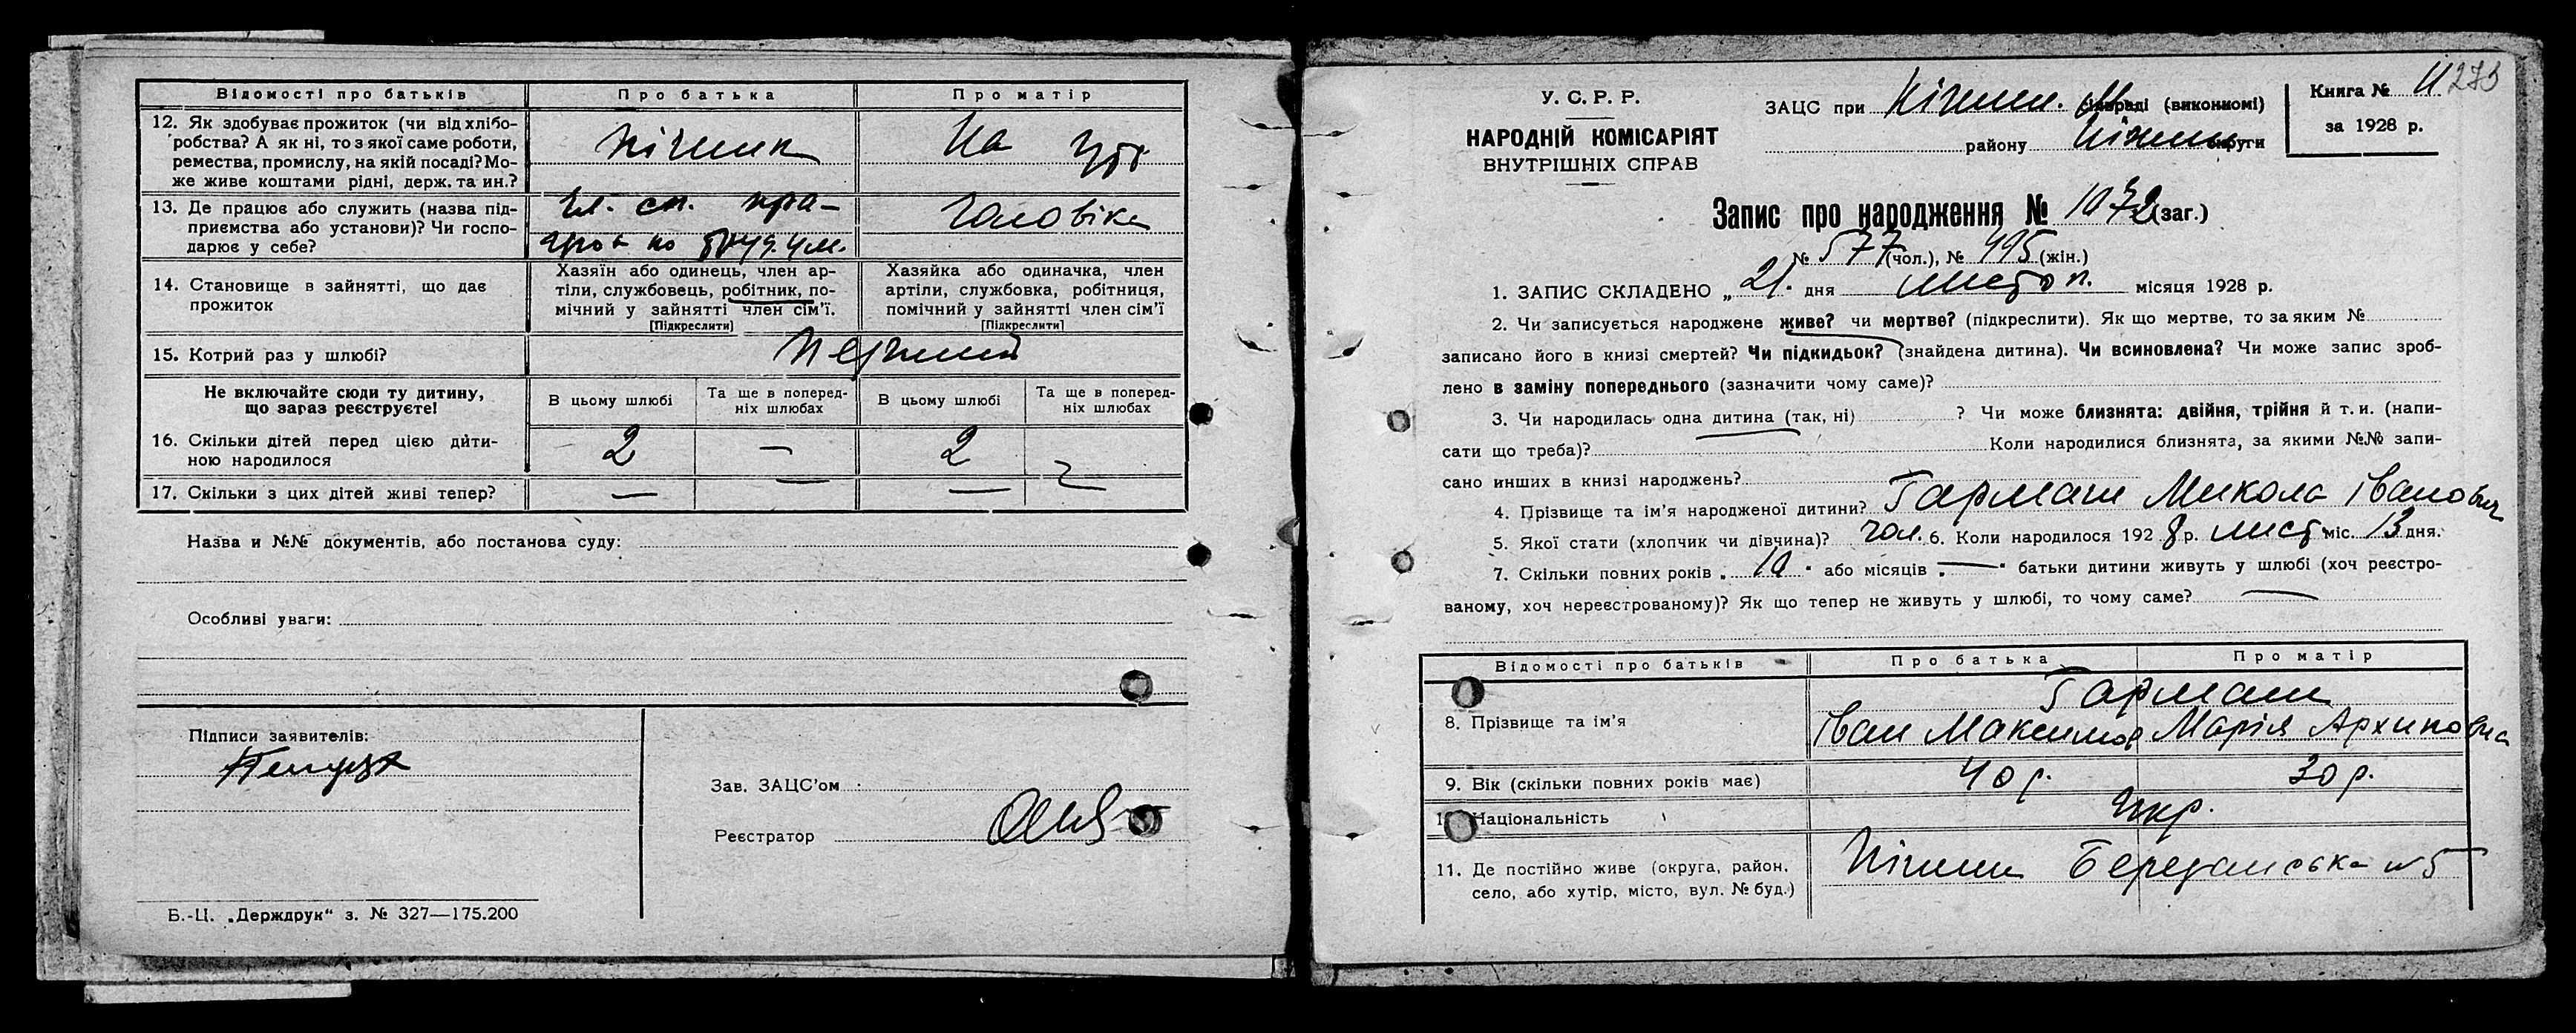 Відомості про батьків
Про батька
Про матір
12. Як здобуває прожиток (чи від хлібо-
робства? А як ні, то з якої саме роботи,
ремества, промислу, на якій посаді? Мо-
же живе коштами рідні, держ. та ин.?
На утр.
13. Де працює або служить (назва під-
приємства або установи)? Чи госпо-
дарює у себе?
чоловіка
14. Становище в зайнятті, що дає
прожиток
Хазяїн або одинець, член ар-
тіли, службовець, робітник, по-
мічний у зайнятті член сім'ї.
[Підкреслити]
Хазяйка або одиначка, член
артіли, службовка, робітниця,
помічний у зайнятті член сім'ї
[Підкреслити]
15. Котрий раз у шлюбі?
перший
Не включайте сюди ту дитину,
що зараз реєструєте!
В цьому шлюбі
Та ще в поперед-
ніх шлюбах
В цьому шлюбі
Та ще в поперед-
ніх шлюбах
16. Скільки дітей перед цією дити-
ною народилося
2 — 2
17. Скільки з цих дітей живі тепер?
— — —
Назва и №№ документів, або постанова суду:
Особливі уваги:
Підписи заявителів:
Зав. ЗАЦС'ом
Реєстратор
Б.-Ц. „Держдрук“ з. № 327—175.200
У. С. Р. Р.
НАРОДНІЙ КОМІСАРІЯТ
ВНУТРІШНІХ СПРАВ
ЗАЦС при Ніжин. (виконкомі)
району Ніжин округи
Книга № 11
за 1928 р.
273
Запис про народження № 1072 (заг.)
№ 577 (чол.), № 495 (жін.)
1. ЗАПИС СКЛАДЕНО „21. дня листоп. місяця 1928 р.
2. Чи записується народжене живе? чи мертве? (підкреслити). Як що мертве, то за яким №
записано його в книзі смертей? Чи підкидьок? (знайдена дитина). Чи всиновлена? Чи може запис зроб-
лено в заміну попереднього (зазначити чому саме)?
3. Чи народилась одна дитина (так, ні) ? Чи може близнята: двійня, трійня й т. и. (напи-
сати що треба)? Коли народилися близнята, за якими №№ запи-
сано инших в книзі народжень?
4. Прізвище та ім'я народженої дитини? Гармаш Микола Іванович
5. Якої стати (хлопчик чи дівчина)? чол. 6. Коли народилося 1928 р. лист міс. 13 дня.
7. Скільки повних років „10“ або місяців „—“ батьки дитини живуть у шлюбі (хоч реєстро-
ваному, хоч нереєстрованому)? Як що тепер не живуть у шлюбі, то чому саме? —
Відомості про батьків
Про батька
Про матір
8. Прізвище та ім'я
Гармаш
Іван Максимов Марія Архиповна
9. Вік (скільки повних років має)
40 р. 30 р.
Національність
Укр.
11. Де постійно живе (округа, район,
село, або хутір, місто, вул. № буд.)
Ніжин Березанська № 5